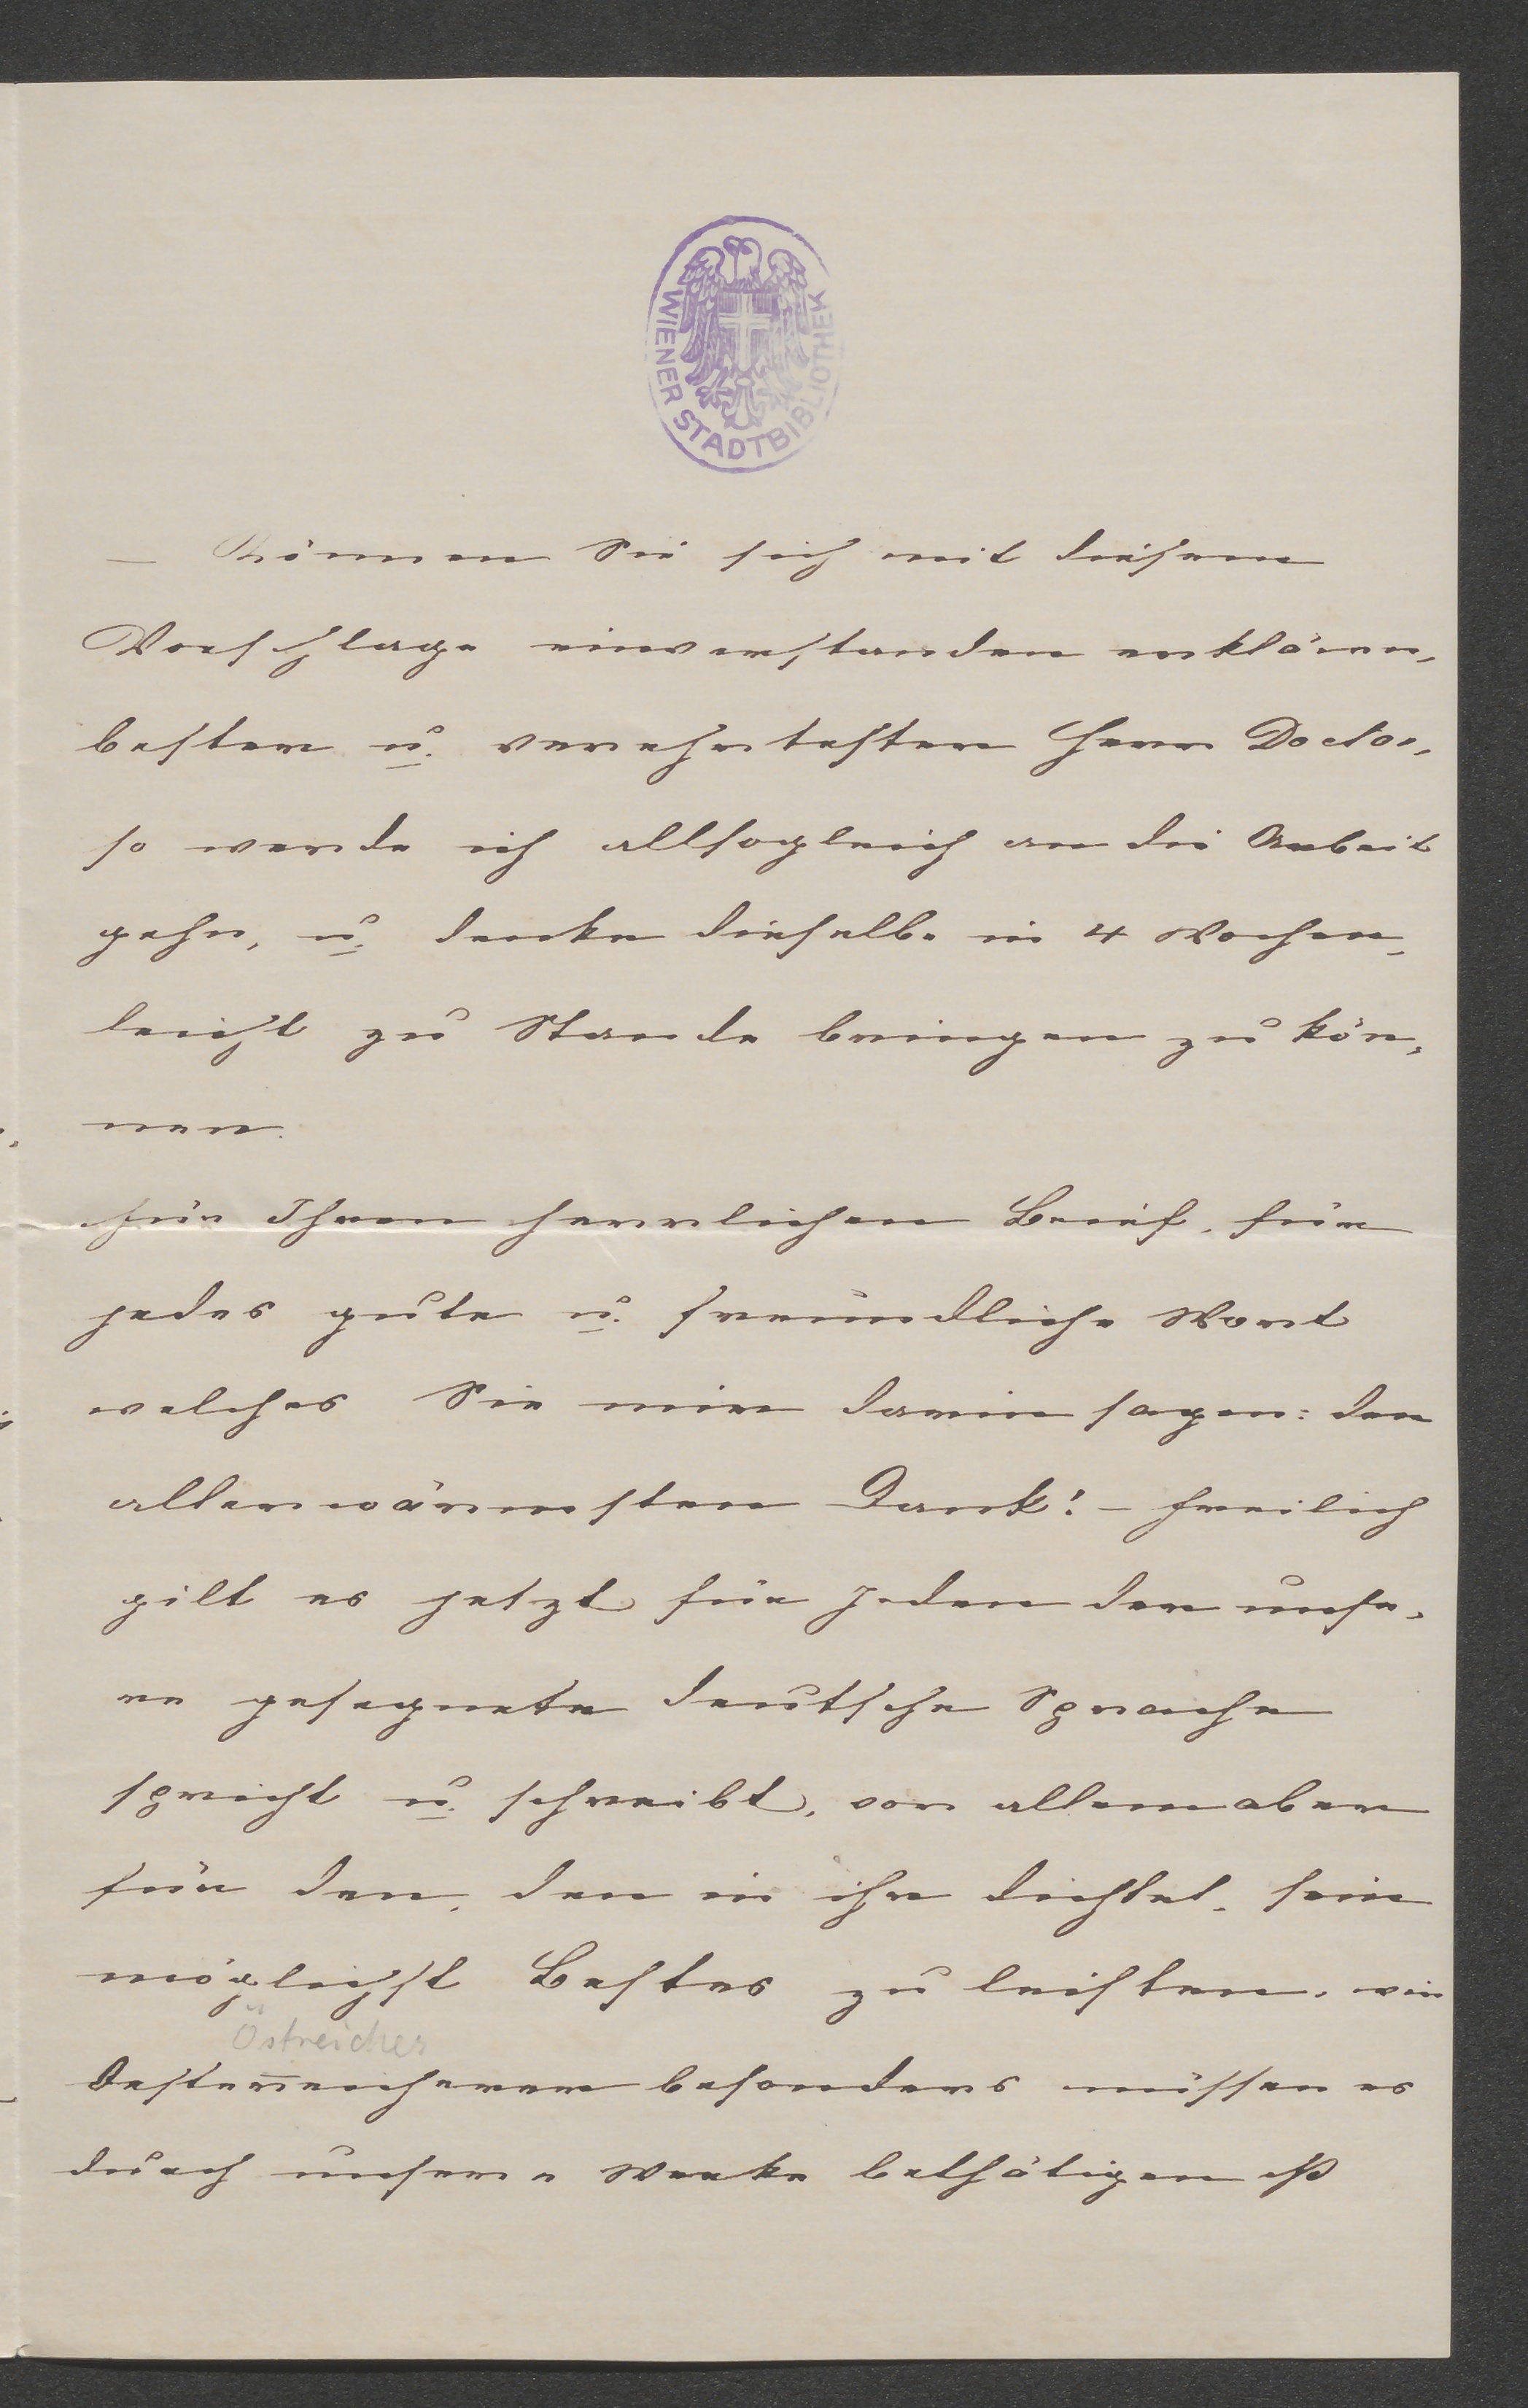 WIENER STADTBIBLIOTHEK
– Können Sie sich mit diesem
Vorschlage einverstanden erklären,
bester u. verehrtester Herr Doctor,
so werde ich allsogleich an die Arbeit
gehn, u. denke dieselbe in 4 Wochen,
leicht zu Stande bringen zu kön,
nen.
Für Ihren herrlichen Brief, für
jedes gute u. freundliche Wort
welches Sie mir darin sagen: den
allerwärmsten Dank! – Freilich
gilt es jetzt für Jeden der unse,
re gesegnete deutsche Sprache
spricht u. schreibt, vor allem aber
für den, der in ihr dichtet, sein
möglichst Bestes zu leisten, wir
Östreicher
besonders müssen es
durch unsere Werke bethätigen